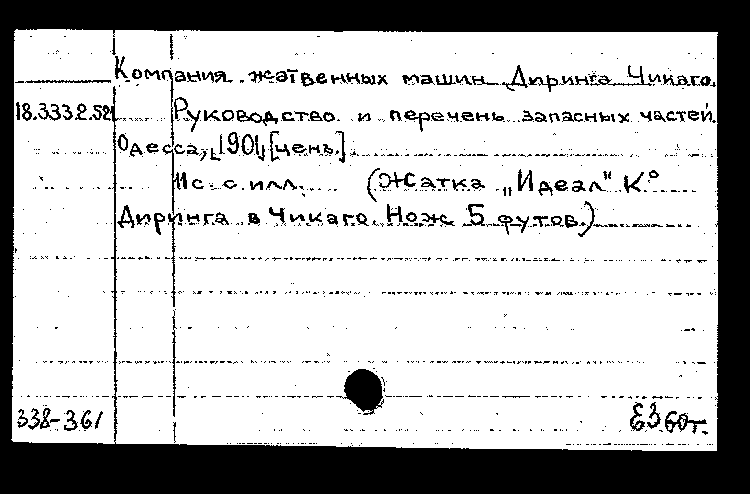 Компания жатвенных машин Диринга Чикаго.
18.3332.52 Руководство и перечень запасных частей.
Одесса, 1901, [цень.].
11с. с илл. (Жатка „Идеал" К.º
Диринга в Чикаго. Нож 5 футов.)
338-361